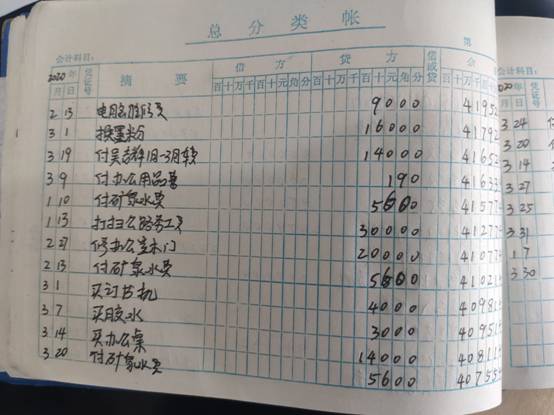 总分类帐
会计科目: 第
2020年 凭证号 摘要 借方 贷方 借或贷 余
月 日 百十万千百十元角分 百十万千百十元角分 百十万千百
2 13 电脑维修费 9000 41952
3 1 换墨粉 16000 41792
3 19 14000 41652
3 9 付办公用品费 190 41633
1 10 付矿泉水费 5600 41577
1 13 打扫公路务工费 30000 41277
2 27 修办公室木门 20000 41077
2 13 付矿泉水费 5600 41021
3 1 买订书机 4000 40981
3 7 买胶水 3000 40951
3 14 买办公桌 14000 40811
3 20 付矿泉水费 5600 40755
会计科目:
2020年 凭证号
月 日
3 24
3 20
3 14
3 27
3 25
3 31
1 7
3 30